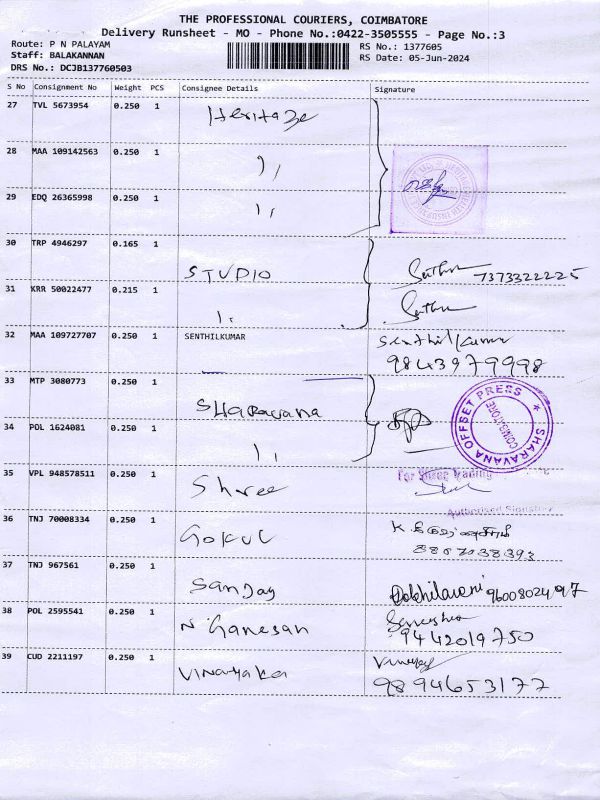 THE PROFESSIONAL COURIERS, COIMBATORE
Delivery Runsheet - MO - Phone No.:0422-3505555 - Page No.:3
Route: P N PALAYAM RS No.: 1377605
Staff: BALAKANNAN RS Date: 05-Jun-2024
DRS No.: DCJB137760503
S No Consignment No Weight PCS Consignee Details Signature
27 TVL 5673954 0.250 1 Heritage
28 MAA 109142563 0.250 1 ),
29 EDQ 26365998 0.250 1 1,
30 TRP 4946297 0.165 1 STUDIO 7373322225
31 KRR 50022477 0.215 1 1,
32 MAA 109727707 0.250 1 SENTHILKUMAR Senthilkumar
9843979998
33 MTP 3080773 0.250 1 SHaravana
SHARAVANA OFFSET PRESS ★ COIMBATORE
34 POL 1624081 0.250 1 1,
35 VPL 948578511 0.250 1 Shree For Shree Trading
Authorised Signatory
36 TNJ 70008334 0.250 1 Gokul
8867038393
37 TNJ 967561 0.250 1 Sanjay 9600802497
38 POL 2595541 0.250 1 N Ganesan
9442019750
39 CUD 2211197 0.250 1 Vinayaka Vinayak
9894653177